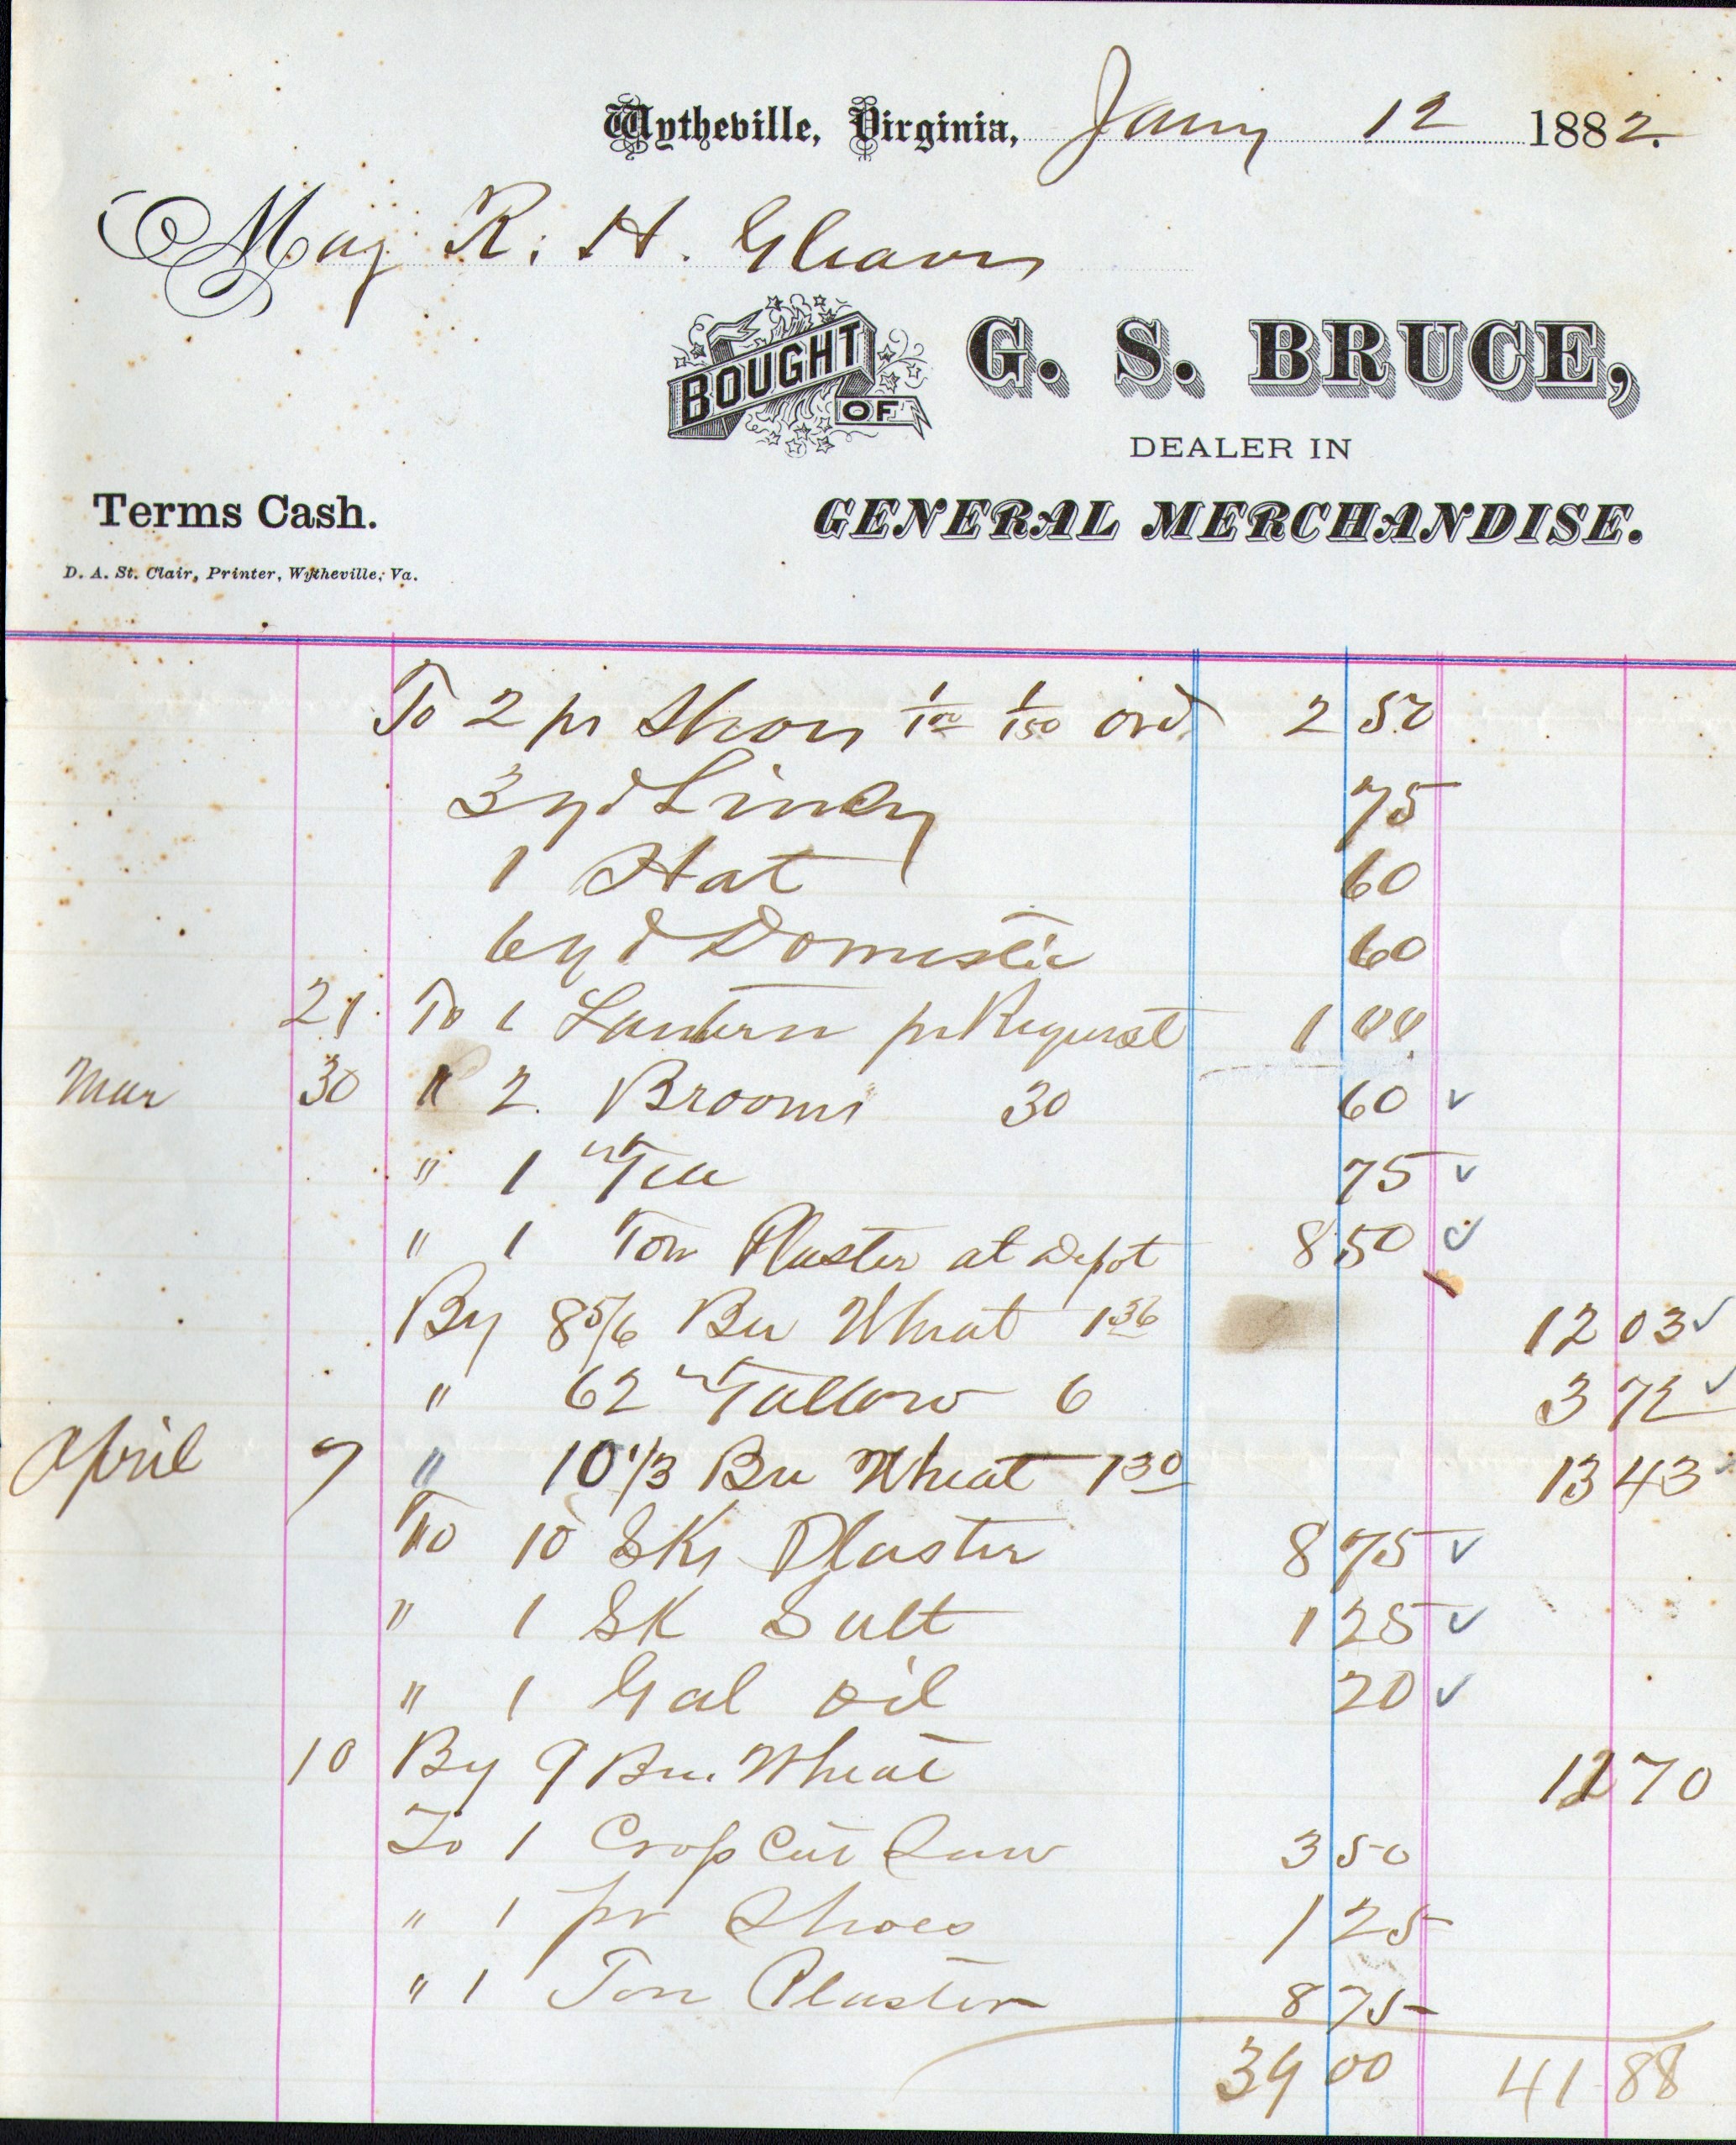 Wytheville, Virginia, Jany 12 1882.
Maj R. H. Gleaves
BOUGHT OF G. S. BRUCE,
DEALER IN
Terms Cash. GENERAL MERCHANDISE.
D. A. St. Clair, Printer, Wytheville, Va.
To 2 pr Shoes 1/100 1/150 ord 2 50
3 yd Linsey 75
1 Hat 60
6 yd Domestic 60
21 To 1 Lantern pr Request 1 00
Mar 30 " 2 Brooms 30 60 ✓
" 1 " Tea 75 ✓
" 1 Ton Plaster at Depot 8 50 ✓
By 8 5/6 Bu Wheat 1 36 12 03 ✓
" 62 Tallow 6 3 72 ✓
April 7 " 10 1/3 Bu Wheat 1 30 13 43
To 10 Sks Plaster 8 75 ✓
" 1 SK Salt 1 25 ✓
" 1 Gal Oil 20 ✓
10 By 9 Bu. Wheat 12 70
To 1 Cross Cut Saw 3 50
" 1 pr Shoes 1 25
" 1 Ton Plaster 8 75
39 00 41 88